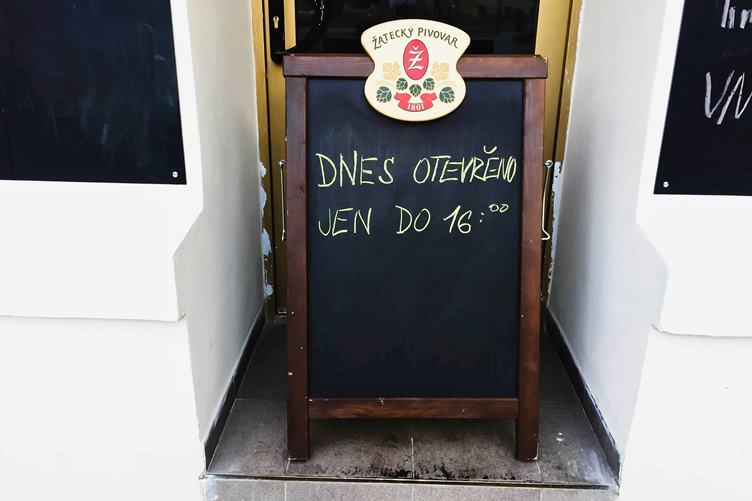 ŽATECKÝ PIVOVAR
Ž
1801
DNES OTEVŘENO
JEN DO 16:00